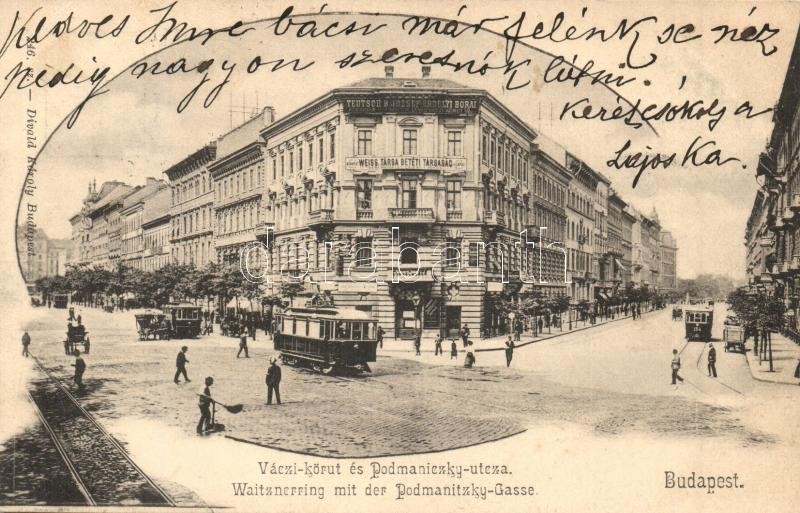 Kedves Imre bácsi már jelénk se néz
pedig nagyon szeretnők látni.
kezét csókolja
Lajoska.
TEUTSCH B. JÓZSEF ERDÉLYI BORAI
WEISS TÁRSA BETÉTI TÁRSASÁG
darabanth
Divald Károly Budapest.
Váczi-körut és Podmaniczky-utcza.
Waitznerring mit der Podmanitzky-Gasse.
Budapest.